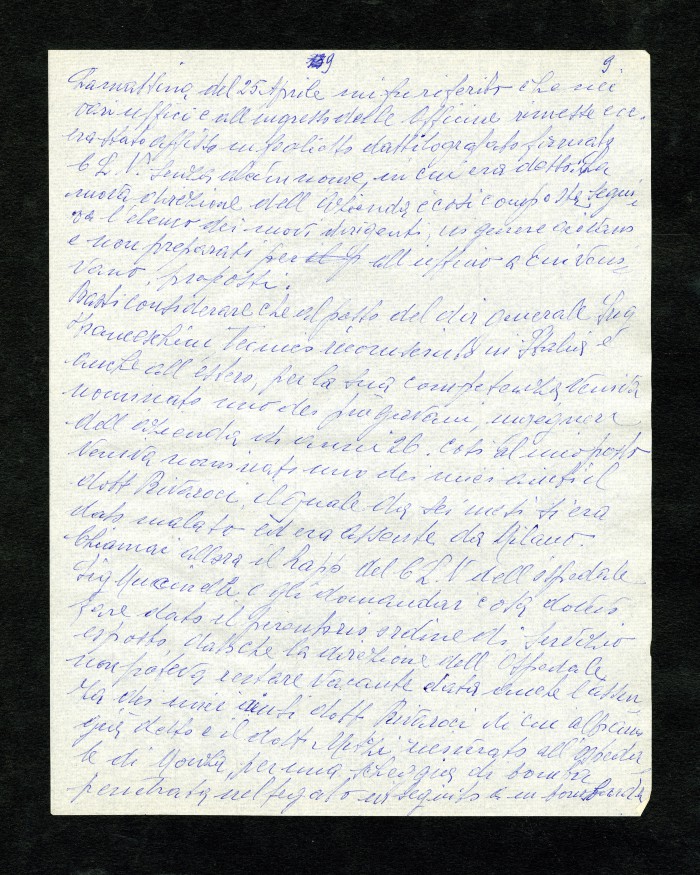 139 9
La mattina del 25 Aprile mi fu riferito che nei
vari uffici e all'ingresso delle Officine rimesse ecc.
era stato affisso un foglietto dattilografato firmato
C L. V. senza alcun nome, in cui era detto: La
nuova direzione dell'Azienda è così composta, segui
va l'elenco dei nuovi dirigenti, in genere
e non preparati per all'ufficio a cui veni=
vano proposti.
Basti considerare che al posto del dir generale Ing
Franceschini tecnico riconosciuto in Italia e
anche all'estero, per la sua competenza veniva
nominato uno dei più giovani, ingegneri
dell'azienda di anni 26. Così al mio posto
veniva nominato uno dei miei aiuti il
dott Bitaroci, il quale da sei mesi si era
dato malato ed era assente da Milano.
Chiamai allora il Capo del C L. V dell'ospedale
Sig e gli domandai cosa doves
fare dato il perentorio ordine di servizio
esposto, dato che la direzione dell'Ospedale
non poteva restare vacante data anche l'assen
za dei miei aiuti dott Bitaroci di cui abbiamo
già detto e il dott. ricoverato all'ospeda
le di Monza, per una scheggia di bomba
penetrata nel fegato in seguito a un bombarda